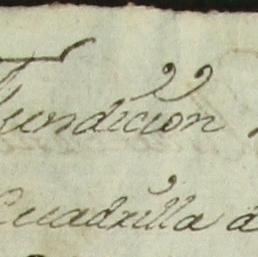 Fundicion
Quadrilla d